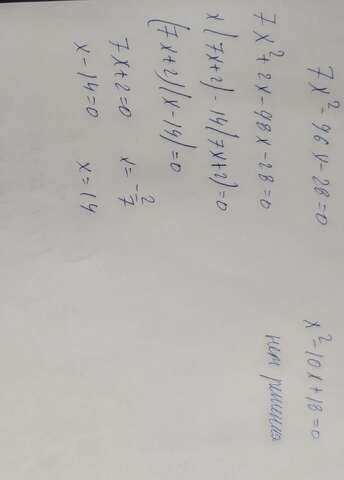 7x² - 96x - 28 = 0
7x² + 2x - 98x - 28 = 0
x(7x+2) - 14(7x+2) = 0
(7x+2)(x-14) = 0
7x+2=0 x = -2/7
x - 14 = 0 x = 14
x² - 10x + 18 = 0
нет решения